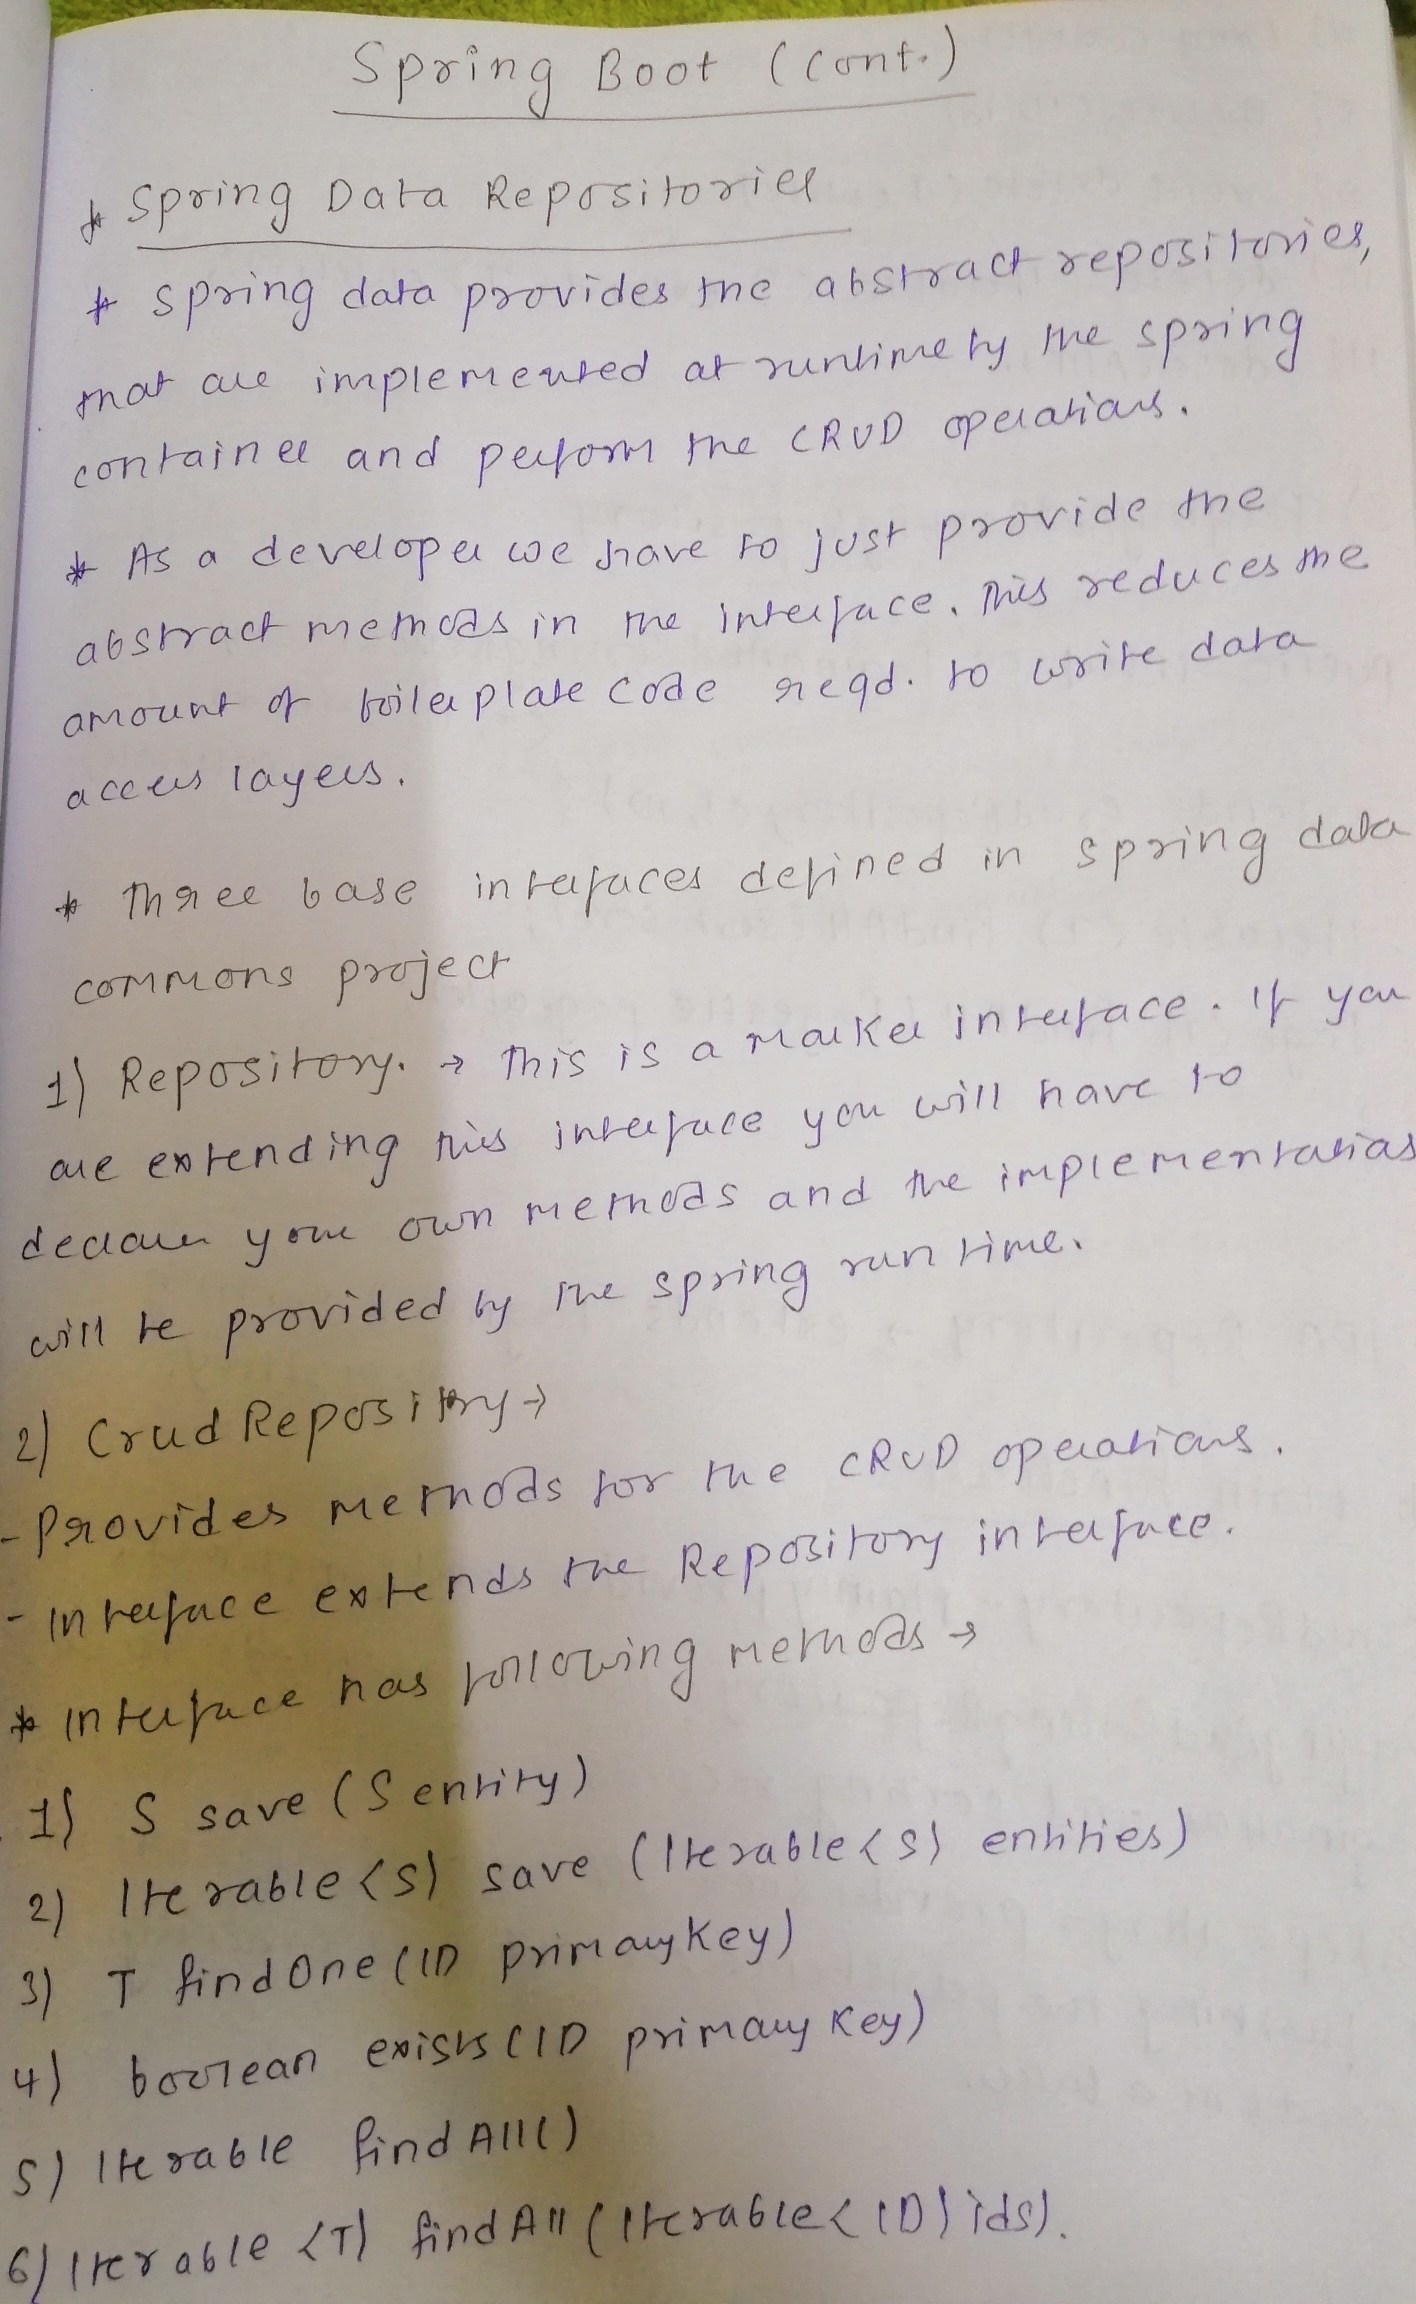 Spring Boot (Cont.)
* Spring Data Repositories
* Spring data provides the abstract repositories,
that are implemented at runtime by the spring
container and perform the CRUD operations.
* As a developer we have to just provide the
abstract methods in the interface. This reduces the
amount of boilerplate code reqd. to write data
access layers.
* Three base interfaces defined in spring data
commons project
1) Repository. → This is a marker interface. If you
are extending this interface you will have to
declare your own methods and the implementations
will be provided by the spring run time.
2) Crud Repository →
- Provides methods for the CRUD operations.
- Interface extends the Repository interface.
* Interface has following methods →
1) S save (S entity)
2) Iterable <S> save (Iterable <S> entities)
3) T findOne (ID primaryKey)
4) boolean exists (ID primaryKey)
5) Iterable findAll()
6) Iterable <T> findAll (Iterable< ID> ids).